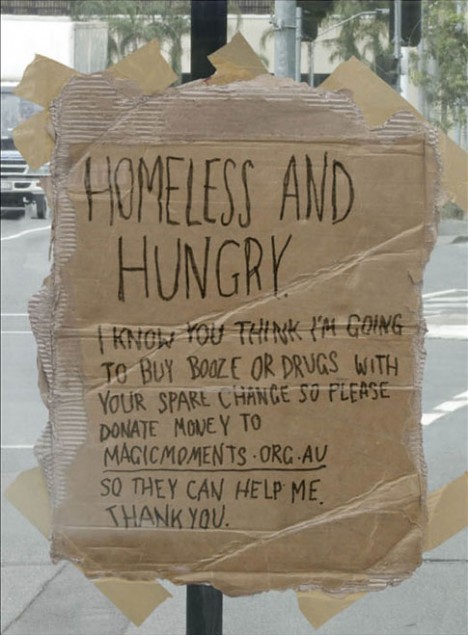 HOMELESS AND
HUNGRY.
I KNOW YOU THINK I'M GOING
TO BUY BOOZE OR DRUGS WITH
YOUR SPARE CHANGE SO PLEASE
DONATE MONEY TO
MAGICMOMENTS.ORG.AU
SO THEY CAN HELP ME.
THANK YOU.